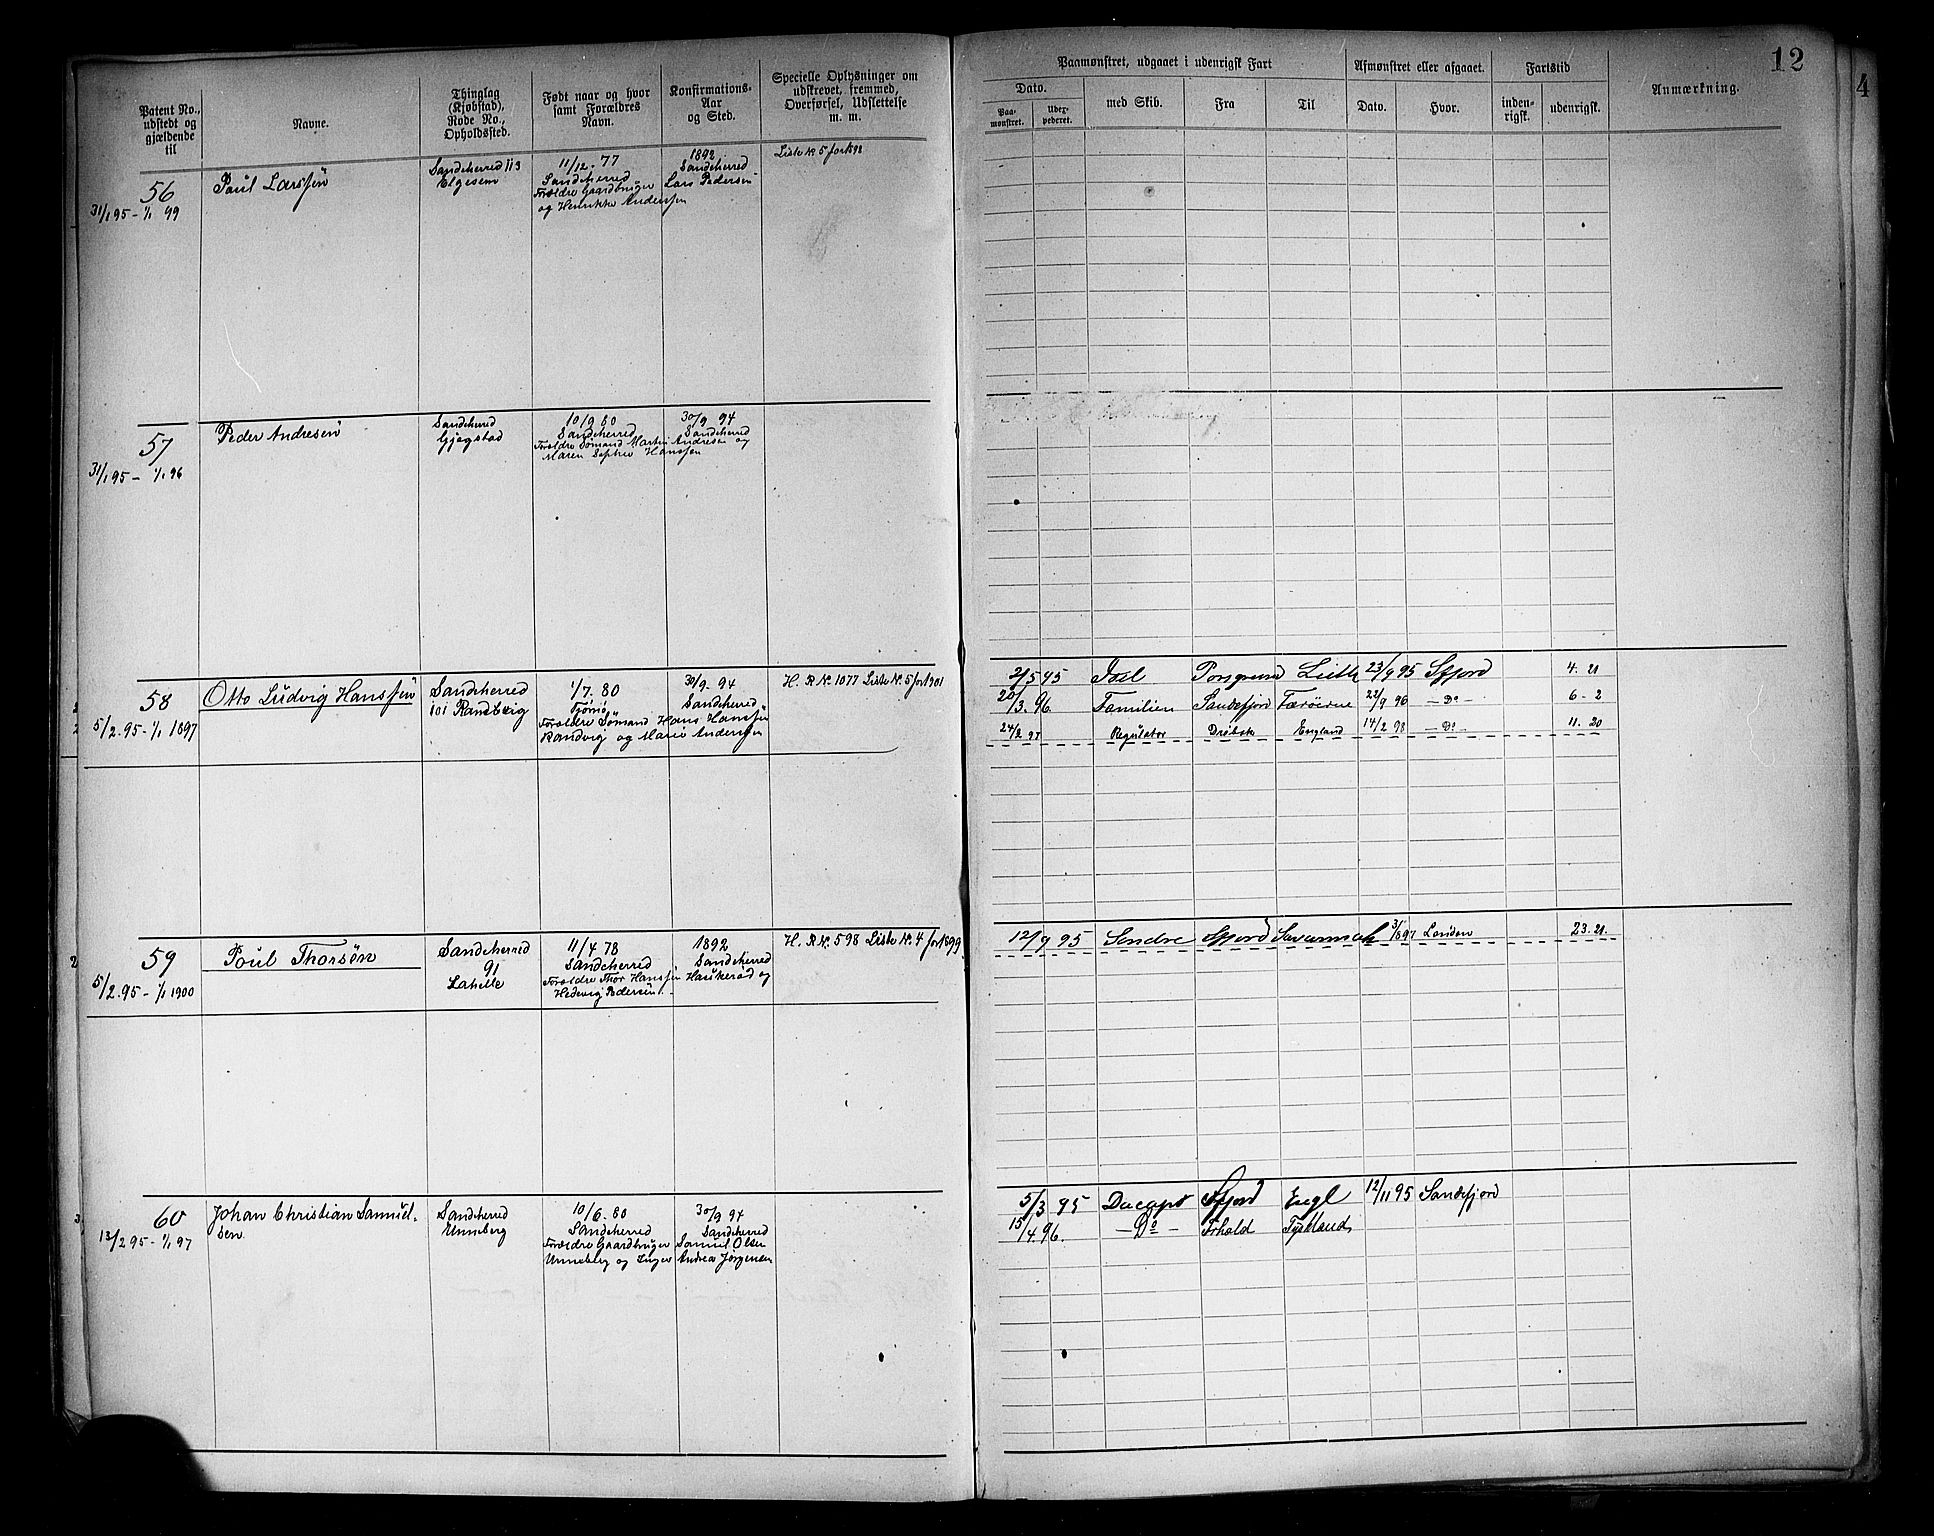 12
4
Patent No., udstedt og gjældende til
Navne.
Thinglag (Kjøbstad), Rode No., Opholdssted.
Født naar og hvor samt Forældres Navn.
Konfirmations-Aar og Sted.
Specielle Oplysninger om udskrevet, fremmed, Overførsel, Udslettelse m. m.
Paamønstret, udgaaet i udenrigsk Fart
Dato.
Paa-mønstret.
Udex-pederet.
med Skib.
Fra
Til
Afmønstret eller afgaaet.
Dato.
Hvor.
Fartstid
inden-rigsk.
udenrigsk.
Anmærkning.
56
31/1 95 – 1/1 99
Paul Larssen
Sandeherred 113
Elgesem
11/12 - 77
Sandeherred
Forældre Gaardbruger Lars Pedersen
og Henrikke Anderssen
1892
Sandeherred
Liste № 5 for 1898
57
31/1 95 – 1/1 96
Peder Andresen
Sandeherred
Gjøgstad
10/9 80
Sandeherred
Forældre Sømand Martin Andresen og
Maren Sophie Hanssen
30/9 94
Sandeherred
58
5/2. 95 – 1/1 1897
Otto Ludvig Hanssen
Sandeherred
101 Ranvig
1/7. 80
Tjømø
Forældre Sømand Hans Hanssen
Randvig og Marie Anderssen
30/9 - 94
Sandeherred
H. R №. 1077 Liste №. 5 for 1901
2/5 95 Porsgrund 23/9 95 Sfjord 4. 21
20/3. 96 Familien Sandefjord Færøerne 22/9 96 – Do – 6 - 2
24/2 97 Regulator Drøbak England 14/2 98 – Do – 11. 20
59
5/2. 95 – 1/1 1900
Poul Thorsen
Sandeherred
91
Lahelle
11/4 78
Sandeherred
Forældre Thor Hanssen Haukerød og
Hedevig Pedersen
1892
Sandeherred
H. R №. 598 Liste №. 4 for 1899
12/9 95 Sondre Sfjord 31/8 97 London 23. 21
60
13/2 95 – 1/1 97
Johan Christian Samuel-
sen
Sandeherred
Unneberg
10/6. 80
Sandeherred
Forældre Gaardbruger Samuel Olsen
Unneberg og Inger Andrea Jørgensen
30/9 94
Sandeherred
5/3 95 Dacapo Sfjord Engl 12/11 95 Sandefjord
15/4. 96. – Do – Frhald Tyskland